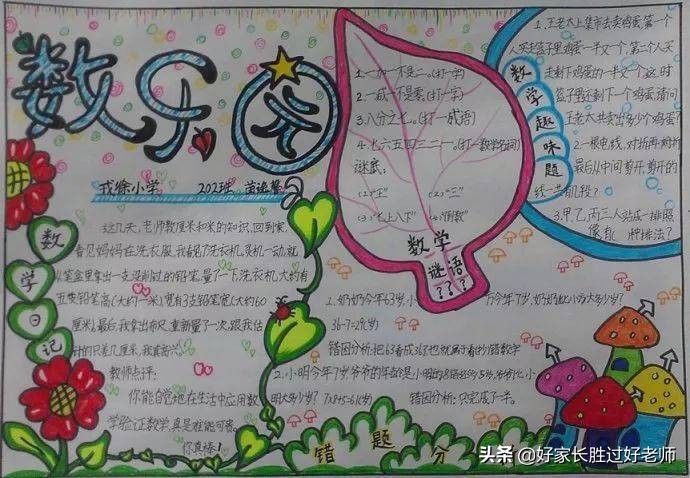 数乐园
戎徐小学 202班
数学日记
这几天,老师教厘米和米的知识,回到家,
看见妈妈在洗衣服,我看了洗衣机,灵机一动,就
从笔盒里拿一支没削过的铅笔,量了一下洗衣机,大约有
五支铅笔高(大约一米),宽有3支铅笔宽(大约60
厘米),最后,我拿出布尺,重新量了一次,跟我估
计的只差几厘米,我真高兴!
教师点评:
你能自觉地在生活中应用数
学,验证数学,真是难能可贵。
你真棒!
1.一加一不是二。(打一字)
2.一减一不是零。(打一字)
3.八分之七。(打一成语)
4.七六五四三二一。(打一数学名词)
谜底:
(1)“王”
(2)“三”
(3)“七上八下”
(4)“倒数”
数学
谜语
? ? ?
数学趣味题
1.王老太上集市去卖鸡蛋,第一个
人买走篮子里鸡蛋一半又一个,第二个人买
走剩下鸡蛋的一半又一个,这时
篮子里还剩下一个鸡蛋,请问
王老太共卖出多少个鸡蛋?
2.一根电线,对折再对折,
最后从中间剪开,剪开的
线一共有几段?
3.甲、乙、丙三人站成一排照
像,有 种排法?
1.奶奶今年63岁,小 万今年7岁,奶奶比小万大多少岁?
36-7=29(岁)
错因分析:把63看成36了,也就属于看的错数字
2.小明今年7岁,爷爷的年龄是小明的8倍多5岁,爷爷比小
明大多少岁? 7x8+5=61(岁)
错因分析:只完成了一半。
错题分
头条 @好家长胜过好老师